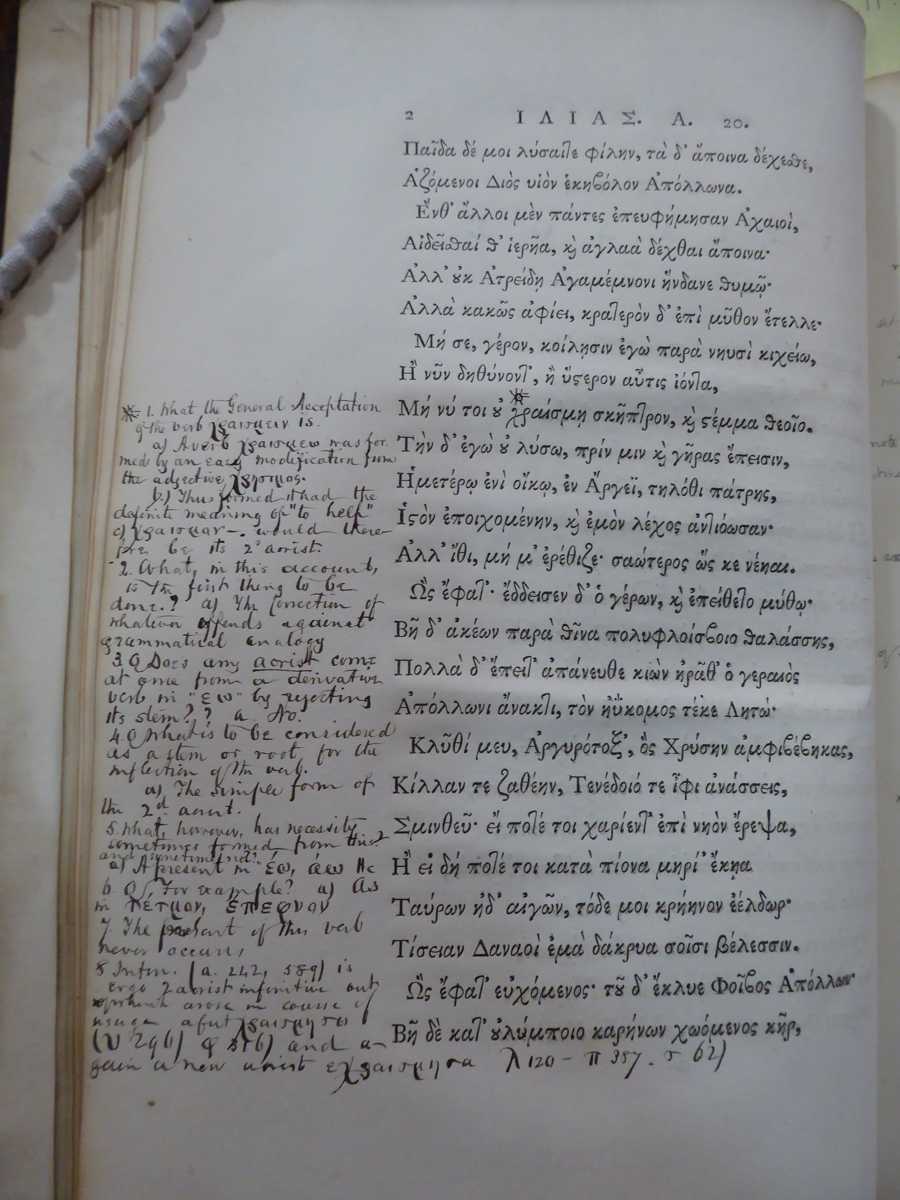 2 ΙΛΙΑΣ. Α. 20.
Παῖδα δέ μοι λύσαιτε φίλην, τὰ δ' ἄποινα δέχεσθε,
Ἁζόμενοι Διὸς υἱὸν ἑκηβόλον Ἀπόλλωνα.
Ἔνθ' ἄλλοι μὲν πάντες ἐπευφήμησαν Ἀχαιοὶ,
Αἰδεῖσθαί θ' ἱερῆα, ϗ ἀγλαὰ δέχθαι ἄποινα·
Ἀλλ' ȣκ Ἀτρείδῃ Ἀγαμέμνονι ἥνδανε θυμῷ·
Ἀλλὰ κακῶς ἀφίει, κρατερὸν δ' ἐπὶ μῦθον ἔτελλε·
Μή σε, γέρον, κοίλῃσιν ἐγὼ παρὰ νηυσὶ κιχείω,
Ἢ νῦν δηθύνοντ', ἢ ὕστερον αὖτις ἰόντα,
Μή νύ τοι ȣ̓ χραίσμῃ σκῆπτρον, ϗ στέμμα θεοῖο.
Τὴν δ' ἐγὼ ȣ̓ λύσω, πρίν μιν ϗ γῆρας ἔπεισιν,
Ἡμετέρῳ ἐνὶ οἴκῳ, ἐν Ἄργεϊ, τηλόθι πάτρης,
Ἱστὸν ἐποιχομένην, ϗ ἐμὸν λέχος ἀντιόωσαν·
Ἀλλ' ἴθι, μή μ' ἐρέθιζε· σαώτερος ὥς κε νέηαι.
Ὣς ἔφατ'· ἔδδεισεν δ' ὁ γέρων, ϗ ἐπείθετο μύθῳ·
Βῆ δ' ἀκέων παρὰ θῖνα πολυφλοίσβοιο θαλάσσης,
Πολλὰ δ' ἔπειτ' ἀπάνευθε κιὼν ἠρᾶθ' ὁ γεραιὸς
Ἀπόλλωνι ἄνακτι, τὸν ἠΰκομος τέκε Λητώ·
Κλῦθί μευ, Ἀργυρότοξ', ὃς Χρύσην ἀμφιβέβηκας,
Κίλλαν τε ζαθέην, Τενέδοιό τε ἶφι ἀνάσσεις,
Σμινθεῦ· εἴ ποτέ τοι χαρίεντ' ἐπὶ νηὸν ἔρεψα,
Ἢ εἰ δή ποτέ τοι κατὰ πίονα μηρί' ἔκηα
Ταύρων ἠδ' αἰγῶν, τόδε μοι κρήηνον ἐέλδωρ·
Τίσειαν Δαναοὶ ἐμὰ δάκρυα σοῖσι βέλεσσιν.
Ὣς ἔφατ' εὐχόμενος· τȣ͂ δ' ἔκλυε Φοῖβος Ἀπόλλων·
Βῆ δὲ κατ' ȣλύμποιο καρήνων χωόμενος κῆρ,
1. What the General Acceptation
of the verb χραισμειν is.
a) A verb χραισμεω was for
med by an easy modification from
the adjective χρησιμος.
b) Thus formed it had the
definite meaning of "to help"
c) χραισμον—. would there-
fore be its 2d aorist.
2. What, in this account,
is the first thing to be
done.? a) The correction of
whatever offends against
grammatical analogy
3. Q Does any aorist come
at once from a derivative
verb in "εω" by rejecting
its stem?? a No.
4. Q What is to be considered
as a stem or root for the
inflection of the verb.
a) The simple form of
the 2d aorist.
5. What, however, has necessity
sometimes formed from this?
and sometimes not?
a) A present in έω, άω &c
6. Q For example? a) As
in πέτμον, έπεφνον
7. The present of this verb
never occurs,
8 Infin. (a. 242, 589) is
ergo 2 aorist infinitive out
arose in course of
usage a fut χραισμησω
(υ 296) φ 316) and a-
gain a new aorist εχραισμησα λ 120 – π 837. σ 62)
note
of